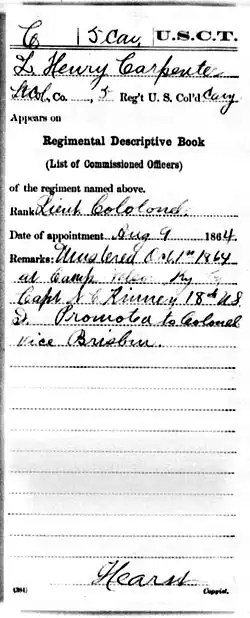 C | 5 Cav. | U.S.C.T.
L Henry Carpenter
Co. , 5 Reg't U. S. Col'd Cavy
Appears on
Regimental Descriptive Book
(List of Commissioned Officers)
of the regiment named above.
Rank Lieut Colonel
Date of appointment Aug 9 1864.
Remarks: Mustered Oct 1st 1864
at Camp Nelson Ky by
Capt N C Kinney 18th US
I. Promoted to Colonel
vice Brisbin.
Hearst
(384) Copyist.